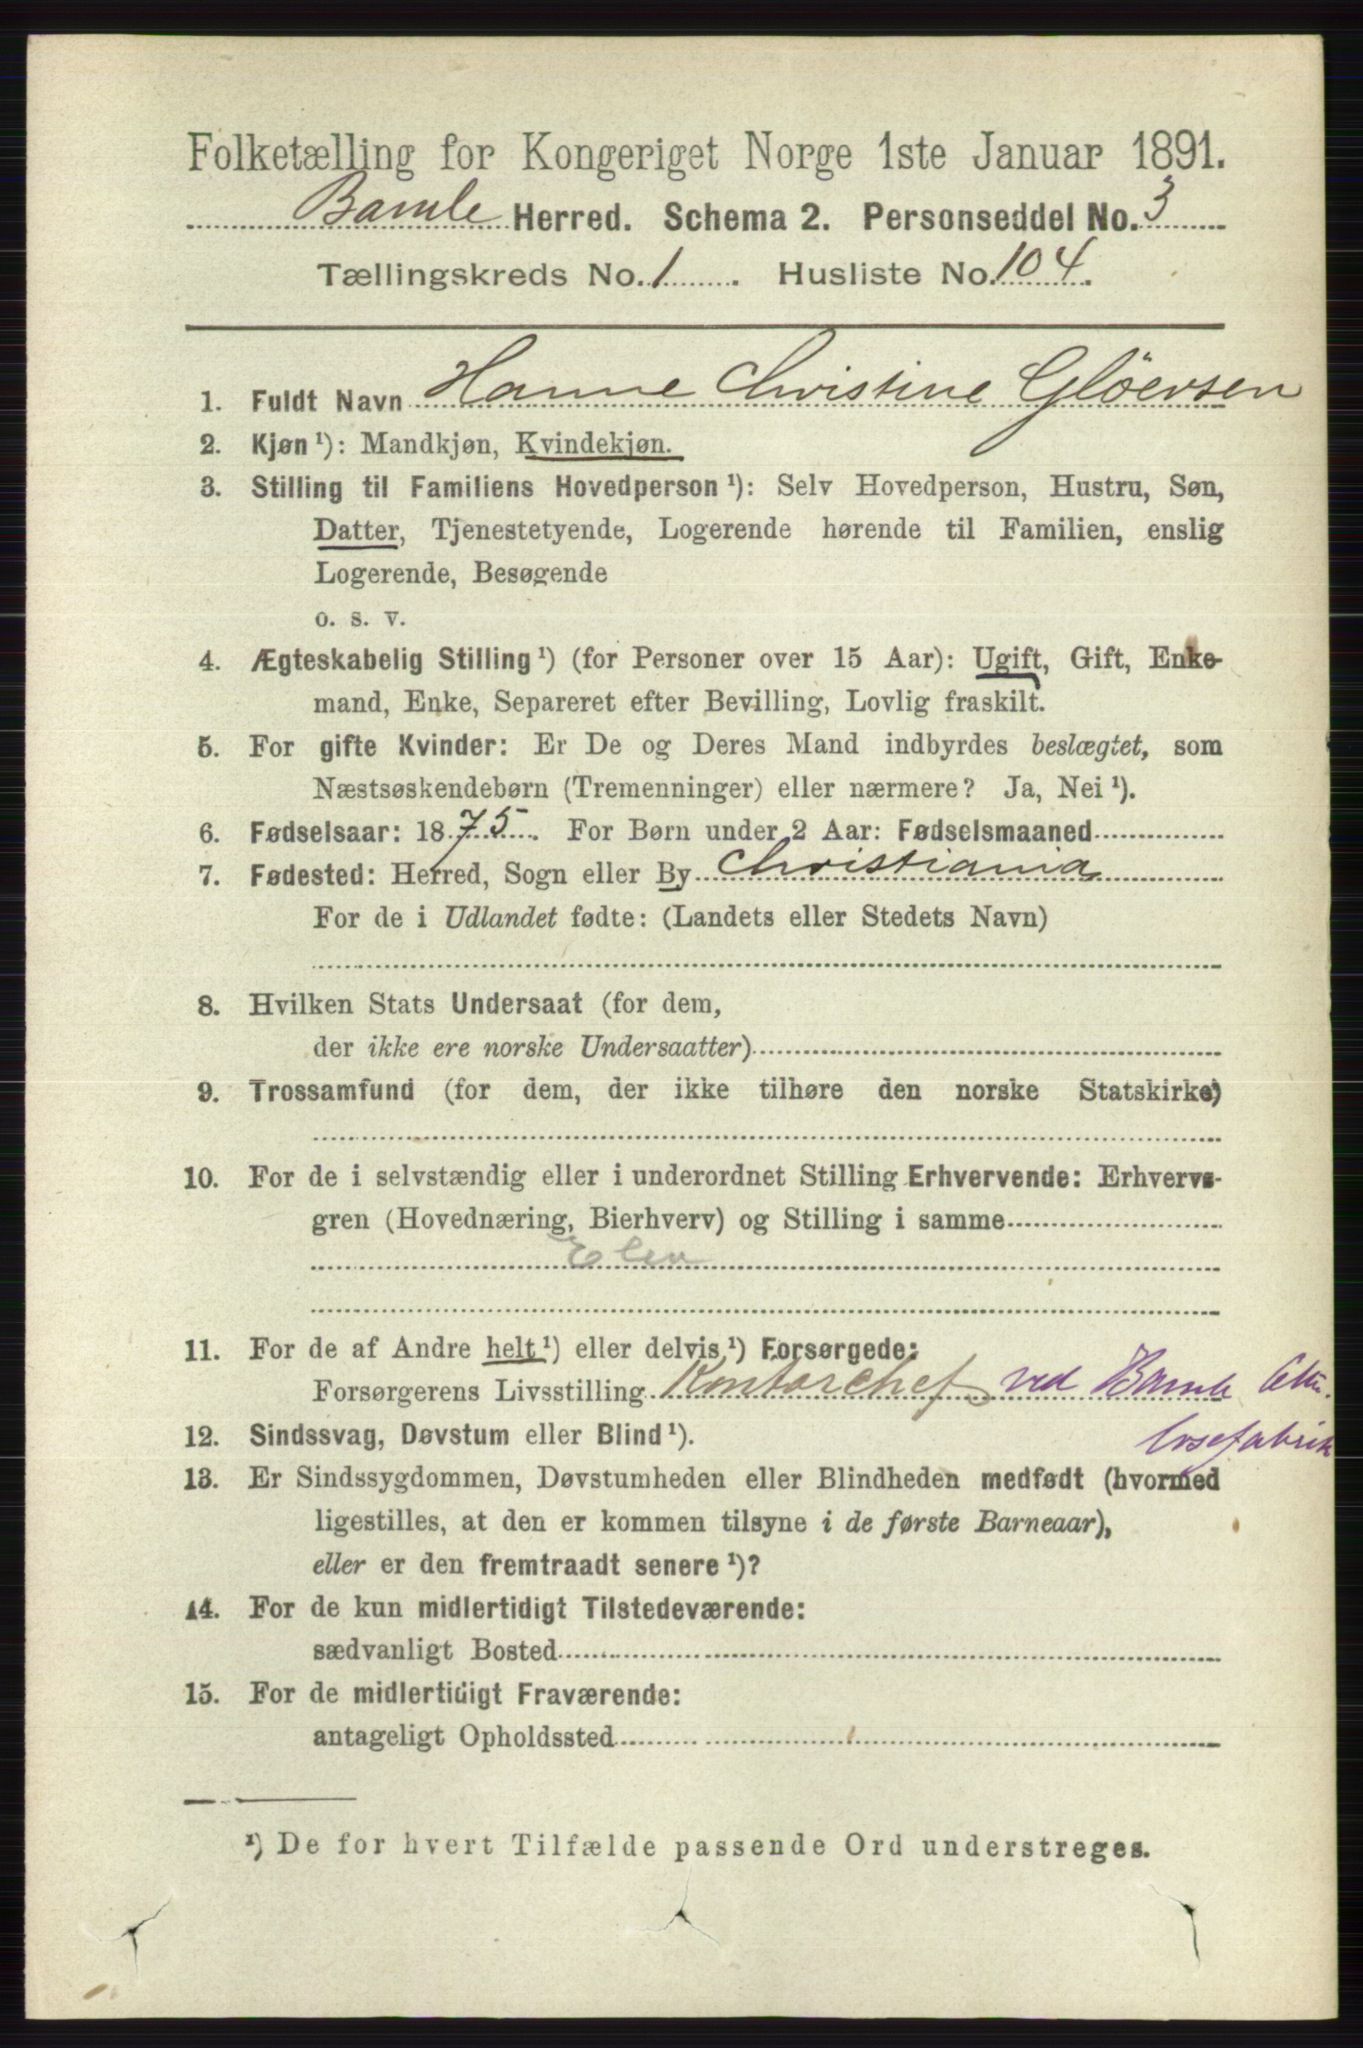 Folketælling for Kongeriget Norge 1ste Januar 1891.
Bamle Herred. Schema 2. Personseddel No. 3
Tællingskreds No. 1. Husliste No. 104.
1. Fuldt Navn Hanne Christine Glöersen
2. Kjøn¹): Mandkjøn, Kvindekjøn.
3. Stilling til Familiens Hovedperson¹): Selv Hovedperson, Hustru, Søn,
Datter, Tjenestetyende, Logerende hørende til Familien, enslig
Logerende, Besøgende
o. s. v.
4. Ægteskabelig Stilling¹) (for Personer over 15 Aar): Ugift, Gift, Enke-
mand, Enke, Separeret efter Bevilling, Lovlig fraskilt.
5. For gifte Kvinder: Er De og Deres Mand indbyrdes beslægtet, som
Næstsøskendebørn (Tremenninger) eller nærmere? Ja, Nei¹).
6. Fødselsaar: 1875. For Børn under 2 Aar: Fødselsmaaned
7. Fødested: Herred, Sogn eller By Christiania
For de i Udlandet fødte: (Landets eller Stedets Navn)
8. Hvilken Stats Undersaat (for dem,
der ikke ere norske Undersaatter)
9. Trossamfund (for dem, der ikke tilhøre den norske Statskirke)
10. For de i selvstændig eller i underordnet Stilling Erhvervende: Erhvervs-
gren (Hovednæring, Bierhverv) og Stilling i samme
Elev
11. For de af Andre helt¹) eller delvis¹) Forsørgede:
Forsørgerens Livsstilling Kontorchef ved Bamle
12. Sindssvag, Døvstum eller Blind¹).
13. Er Sindssygdommen, Døvstumheden eller Blindheden medfødt (hvormed
ligestilles, at den er kommen tilsyne i de første Barneaar),
eller er den fremtraadt senere¹)?
14. For de kun midlertidigt Tilstedeværende:
sædvanligt Bosted
15. For de midlertidigt Fraværende:
antageligt Opholdssted
¹) De for hvert Tilfælde passende Ord understreges.